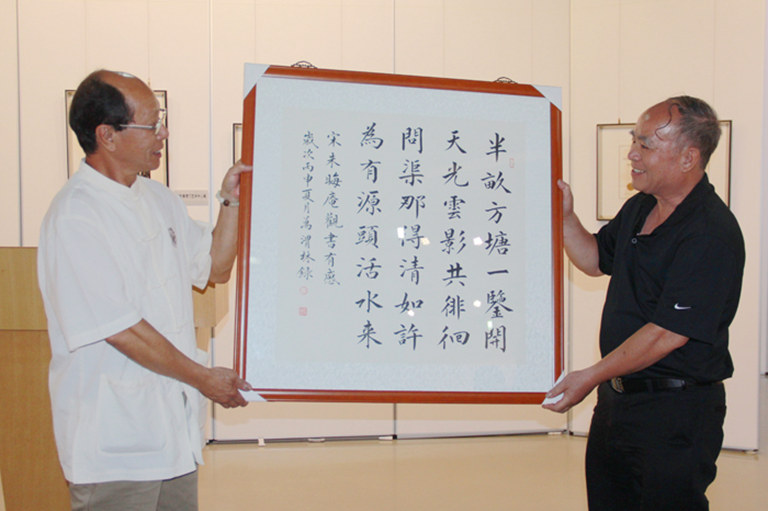 半畝方塘一鑒開
天光雲影共徘徊
問渠那得清如許
為有源頭活水来
宋朱晦庵觀書有感
歲次丙申夏月萬林錄